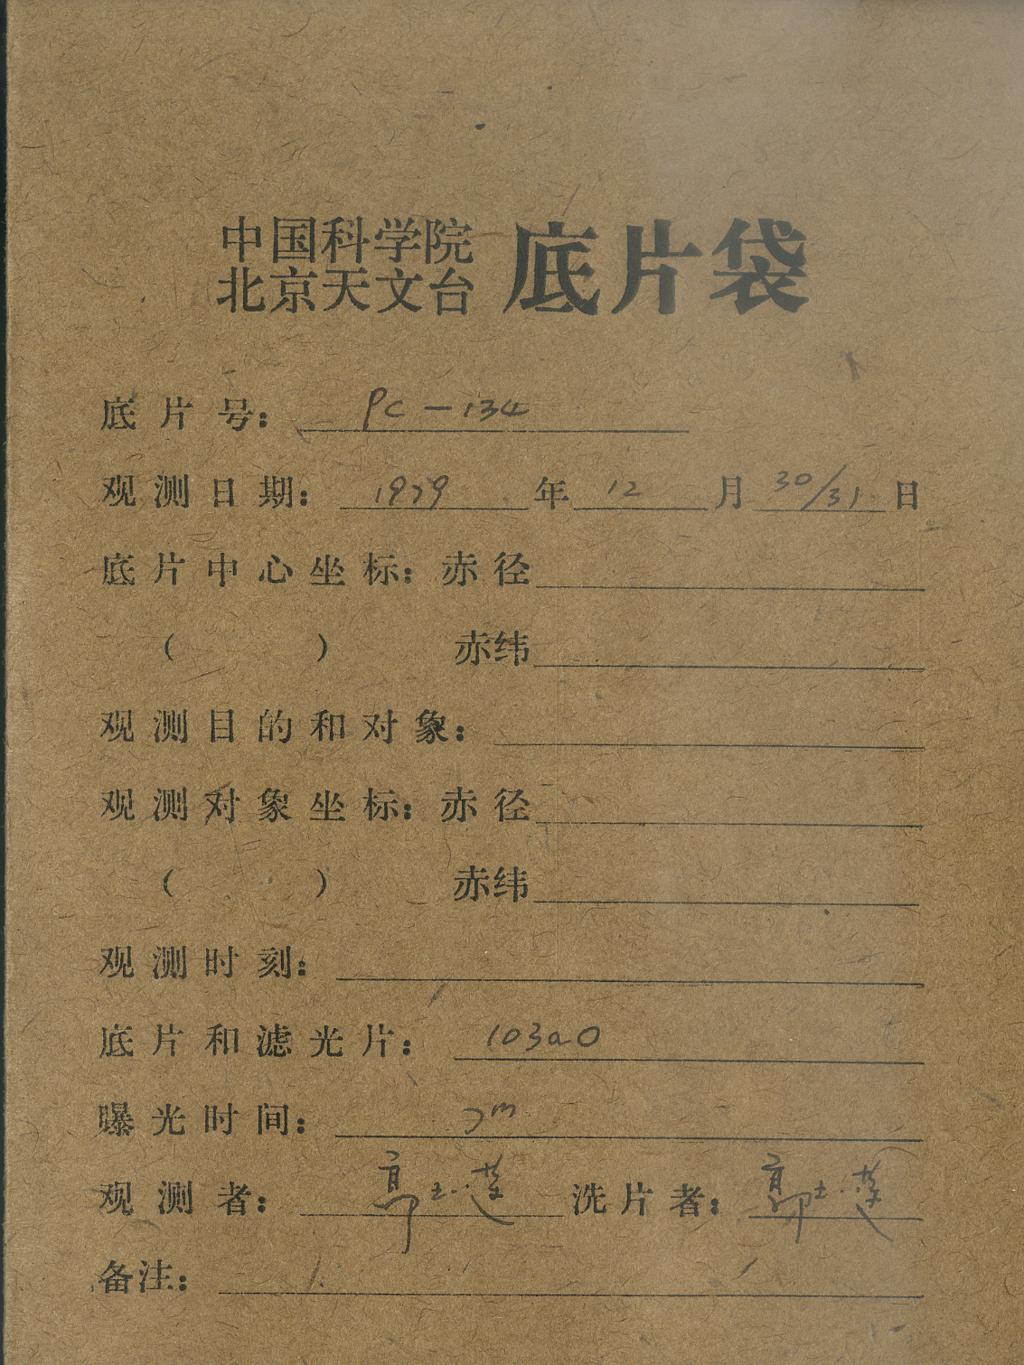 中国科学院
北京天文台 底片袋
底片号: PC-134
观测日期: 1979 年 12 月 30/31 日
底片中心坐标: 赤径
( ) 赤纬
观测目的和对象:
观测对象坐标: 赤径
( ) 赤纬
观测时刻:
底片和滤光片: 103aO
曝光时间: 7m
观测者: 洗片者:
备注: